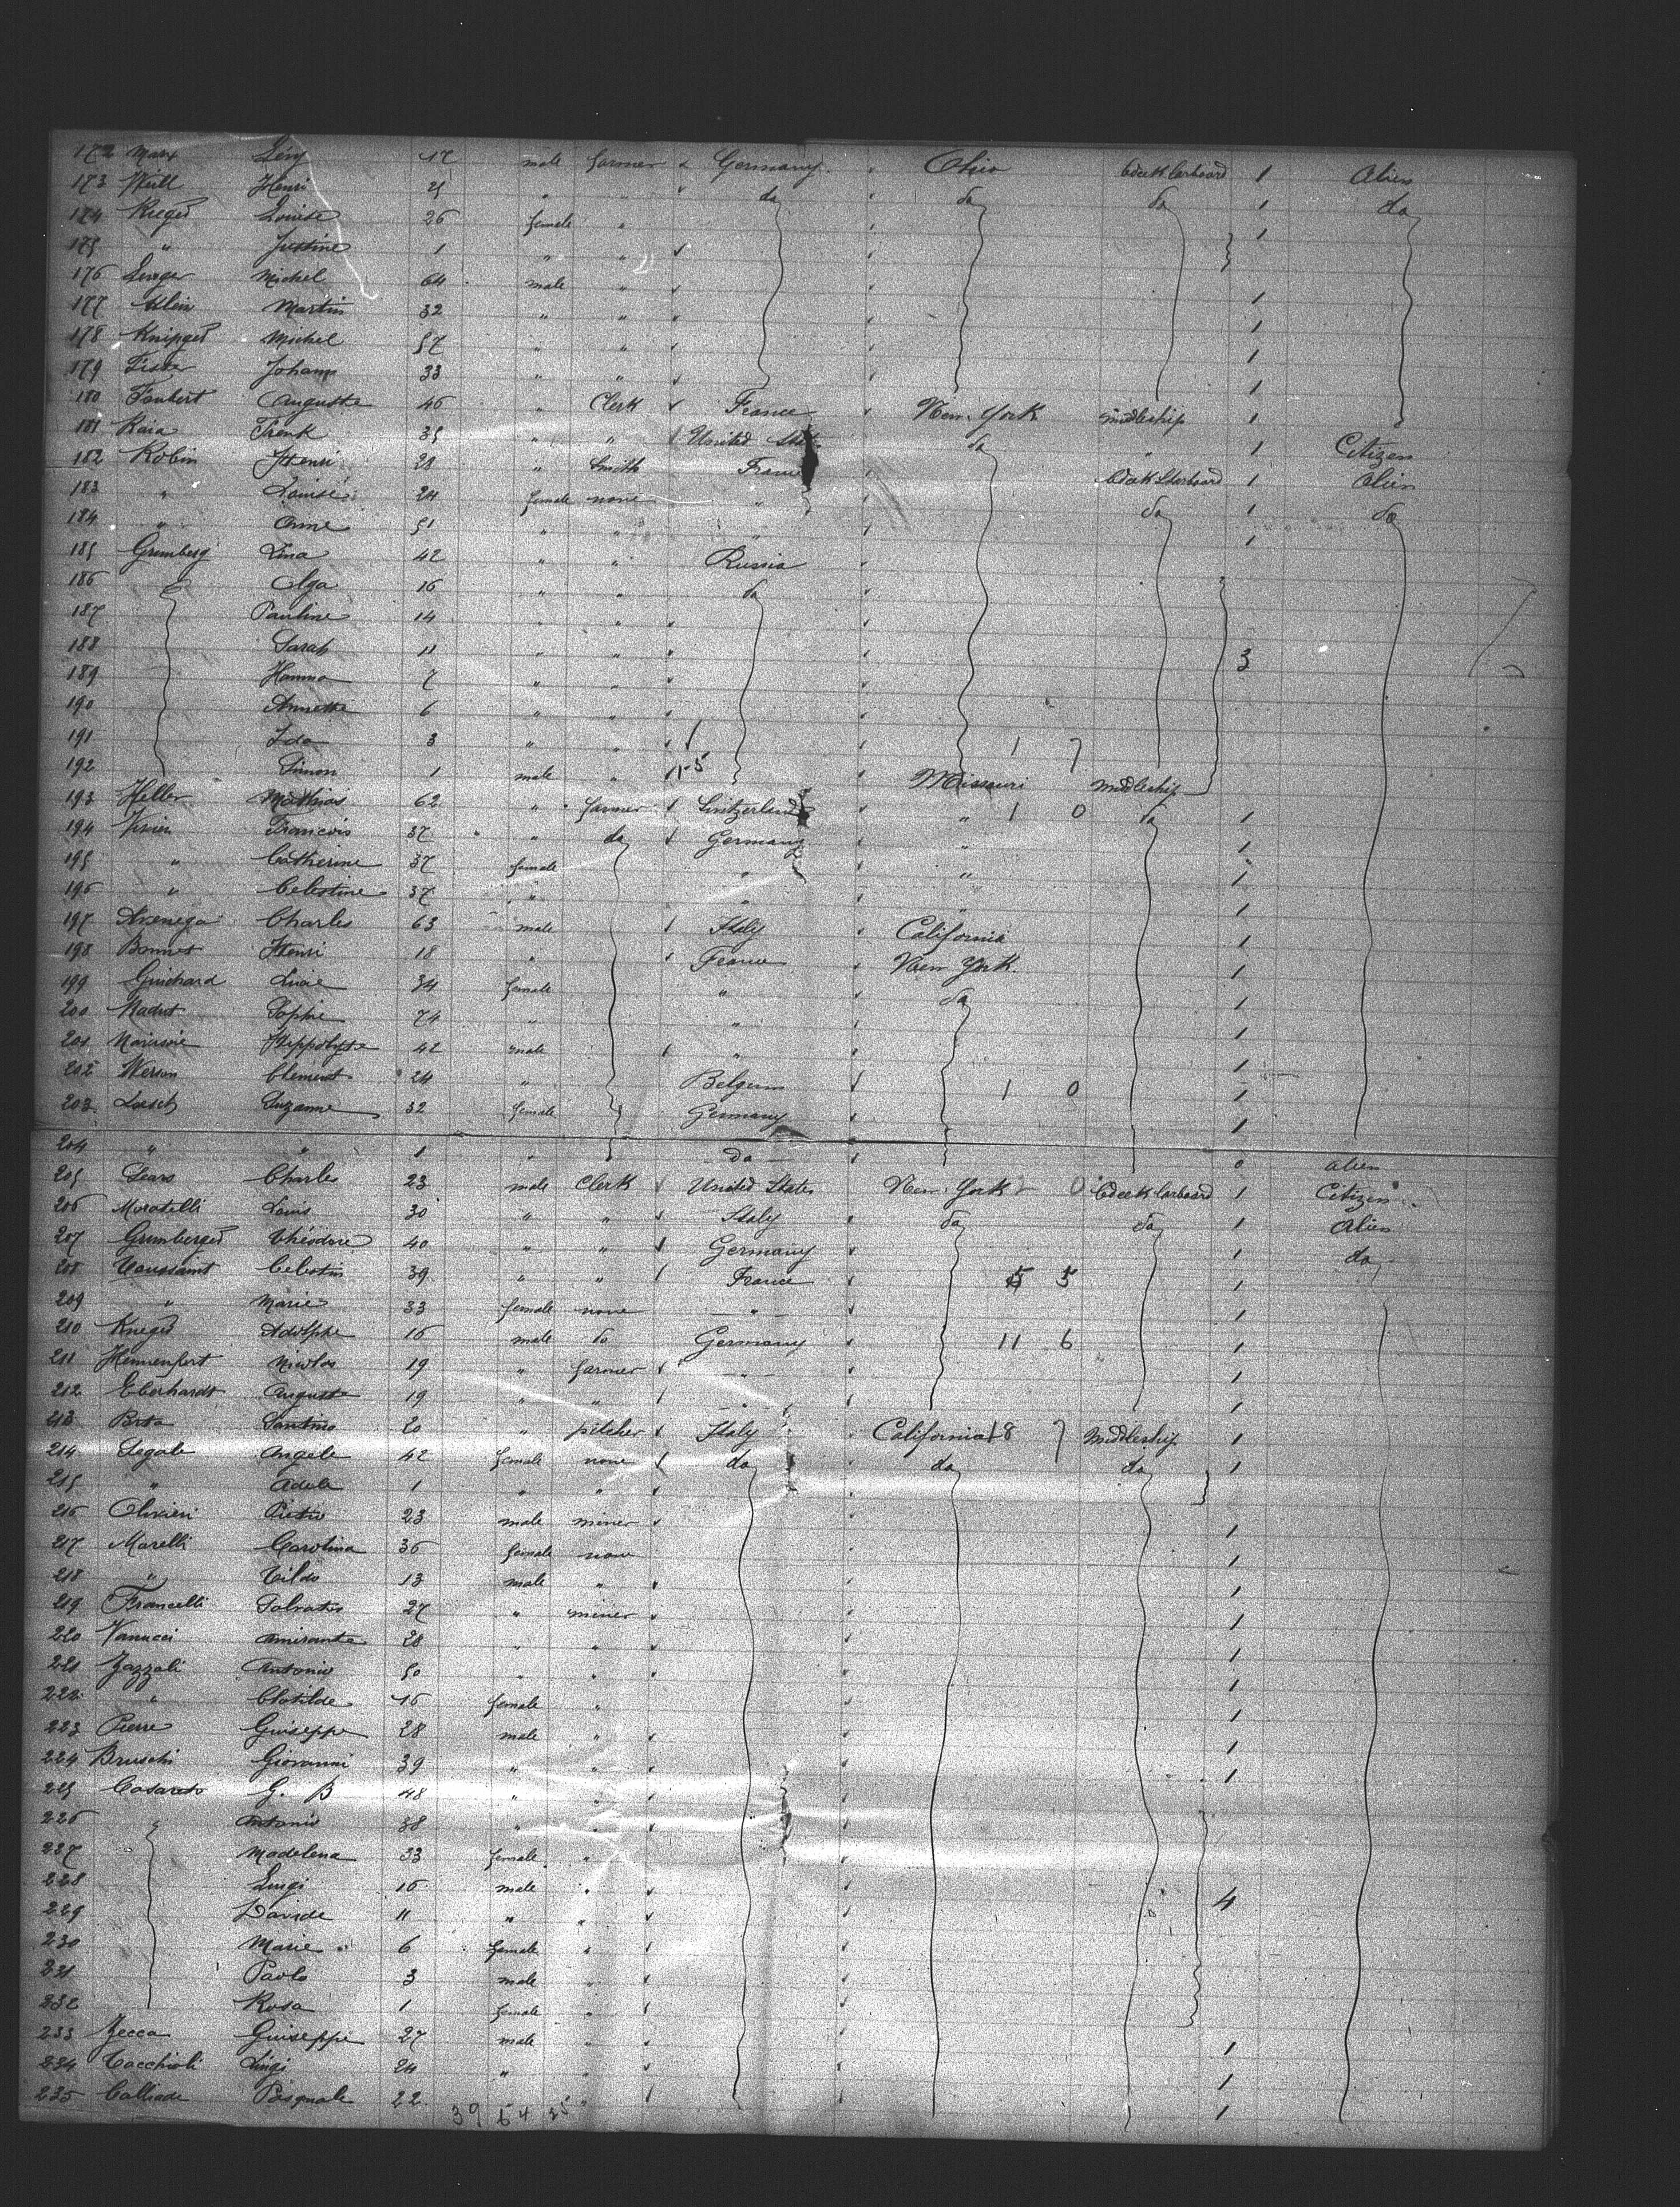 172 Marx Lévy 17 male farmer Germany Ohio bdeck larboard 1 Alien
173 Weill Henri 25 " " do do do 1 do
174 Rieger Louise 26 female " 1
175 " Justine 1 " "
176 Michel 64 male "
177 Klein Martin 32 " " 1
178 Michel 57 " " 1
179 Johann 33 " " 1
180 Auguste 46 " Clerk France New York middleship 1
181 Raia Frank 35 " " United States do " 1 Citizen
182 Robin Henri 28 " Smith France bdeck Starboard 1 Alien
183 " Louise 24 female none " do 1 do
184 " Anne 51 " " " 1
185 Grunberg Lina 42 " " Russia
186 Olga 16 " " do
187 Pauline 14 " "
188 Sarah 11 " " 3
189 Hanna 7 " "
190 Annette 6 " "
191 Ida 3 " " 1 7
192 Simon 1 male " Missouri middleship
193 Heller Mathias 62 " farmer Switzerland " 1 0 do 1
194 François 37 " do Germany " 1
195 " Catherine 37 female " " 1
196 " Celestine 37 " " " 1
197 Charles 63 male Italy California 1
198 Bonnet Henri 18 " France New York 1
199 Guichard Lucie 34 female " do 1
200 Sophie 74 " " 1
201 Hippolyte 42 male " 1
202 Clement 24 " Belgium 1 0 1
203 Loesch Suzanne 32 female Germany 1
204 " " 1 " do 0 alien
205 Sears Charles 23 male Clerk United States New York 0 bdeck larboard 1 Citizen
206 Moratelli Louis 30 " " Italy do do 1 Alien
207 Grunberger Théodore 40 " " Germany 1 do
208 Toussaint Celestin 39 " " France 5 5 1
209 " Marie 33 female none " 1
210 Krieger Adolphe 16 male do Germany 11 6 1
211 Nicolas 19 " farmer " 1
212 Eberhardt Auguste 19 " " " 1
213 Santino 20 " pitcher Italy California 18 7 Middleship 1
214 Segale Angele 42 female none do do do 1
215 " Adele 1 " "
216 Olivieri Pietro 23 male miner 1
217 Morelli Carolina 36 female none 1
218 " Tildo 13 male " 1
219 Francelli 27 " miner 1
220 Vanucci 28 " " 1
221 Zazzali Antonio 50 " " 1
222 " Clotilde 16 female " 1
223 Pierre Giuseppe 28 male " 1
224 Bruschi Giovanni 39 " " 1
225 Casareto G. B 48 " "
226 Antonio 38 " "
227 Madelena 33 female "
228 Luigi 16 male " 4
229 Davide 11 " "
230 Marie 6 female "
231 Paolo 3 male "
232 Rosa 1 female "
233 Zecca Giuseppe 27 male " 1
234 Tacchioli Luigi 24 " " 1
235 Pasquale 22 " 1
39 64 25